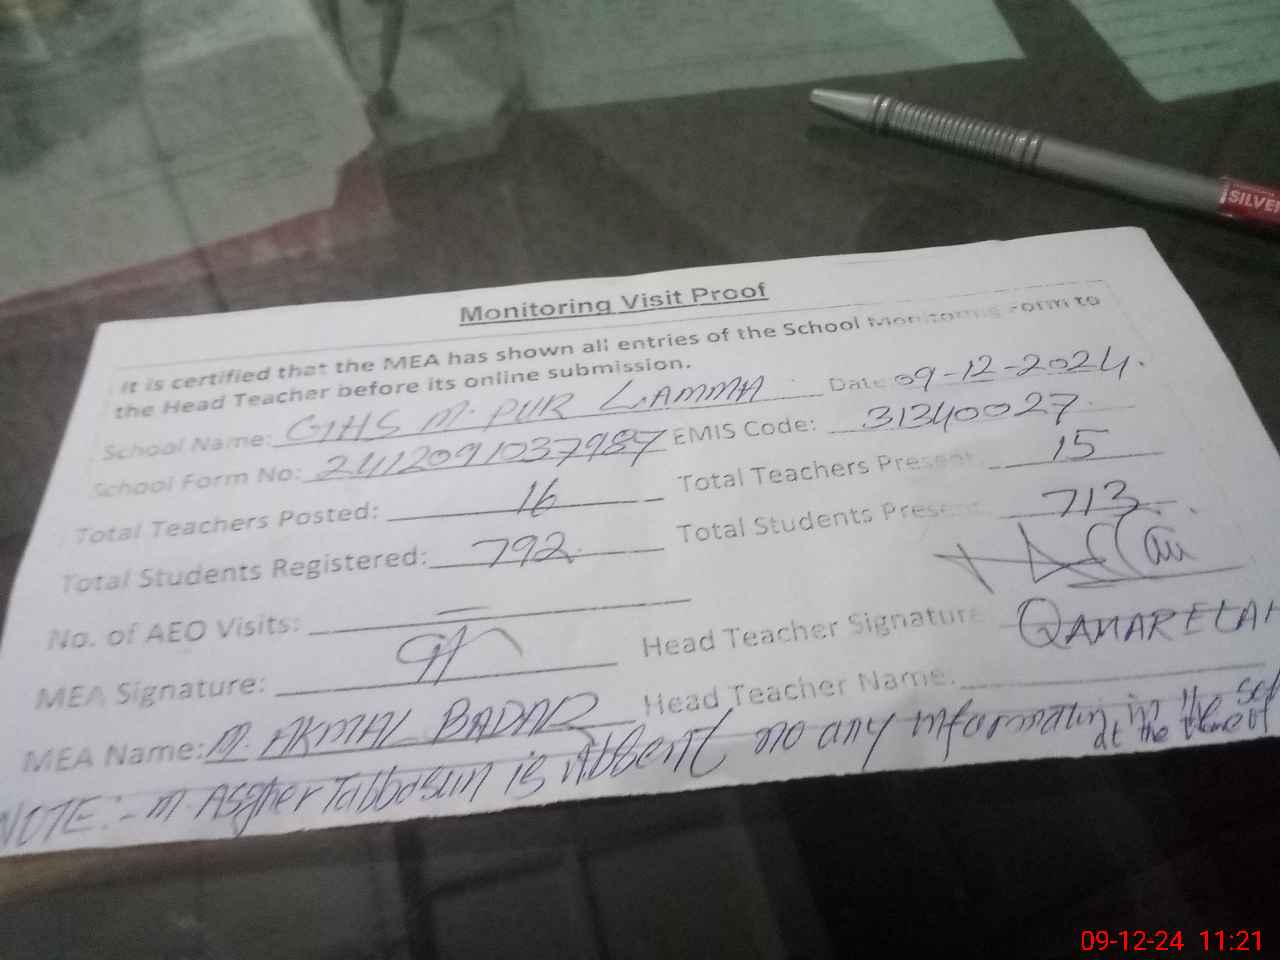 SILVE
Monitoring Visit Proof
It is certified that the MEA has shown all entries of the School Monitoring Form to
the Head Teacher before its online submission.
School Name: GHS M. PUR LAMMA Date 09-12-2024.
School Form No: 2412091037987 EMIS Code: 31340027
Total Teachers Posted: 16 Total Teachers Present 15
Total Students Registered: 792 Total Students Present 713
No. of AEO Visits: —
MEA Signature: Head Teacher Signature
MEA Name: M. AKMAL BADAR Head Teacher Name: QAMAR ELAH
NOTE:- M Asgher Tabbasun is Abbent no any information in the sch
at the time of
09-12-24 11:21